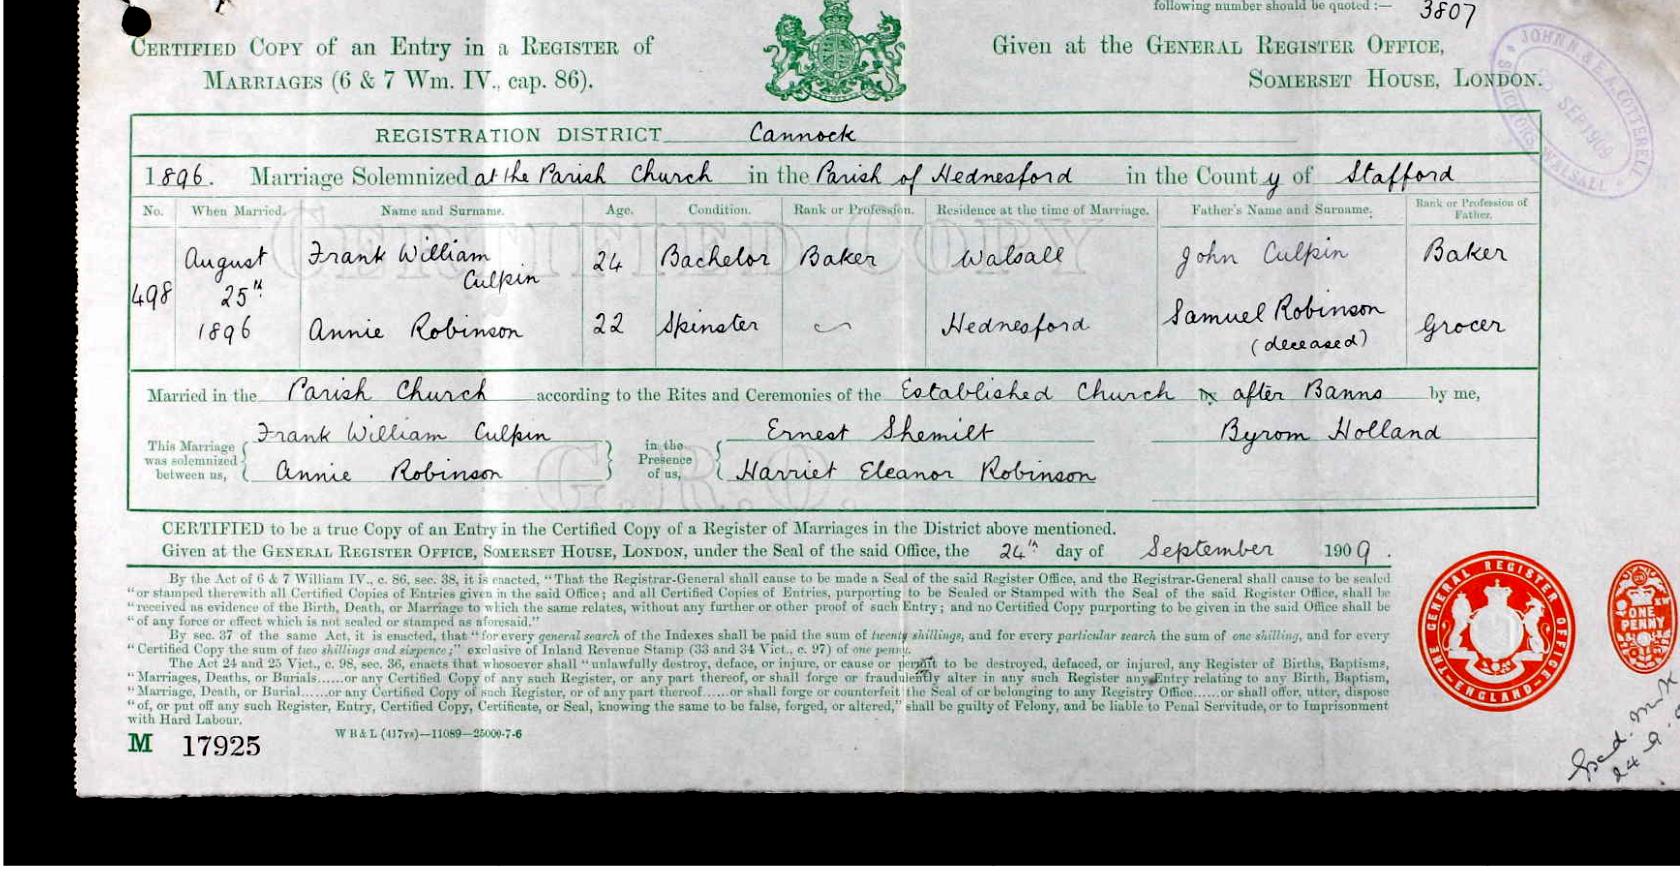 following number should be quoted :— 3807
CERTIFIED COPY of an Entry in a REGISTER of
MARRIAGES (6 & 7 Wm. IV., cap. 86).
Given at the GENERAL REGISTER OFFICE,
SOMERSET HOUSE, LONDON.
JOHN N & E.A. COTTERELL
SEP 1909
WALSALL
REGISTRATION DISTRICT Cannock
1896. Marriage Solemnized at the Parish Church in the Parish of Hednesford in the County of Stafford
No. When Married. Name and Surname. Age. Condition. Rank or Profession. Residence at the time of Marriage. Father's Name and Surname. Rank or Profession of Father.
498 August 25th 1896
Frank William Culpin 24 Bachelor Baker Walsall John Culpin Baker
Annie Robinson 22 Spinster Hednesford Samuel Robinson (deceased) Grocer
Married in the Parish Church according to the Rites and Ceremonies of the Established Church after Banns by me,
This Marriage was solemnized between us, Frank William Culpin
Annie Robinson
in the Presence of us, Ernest Shemilt
Harriet Eleanor Robinson
Byrom Holland
CERTIFIED COPY
G.R.O.
CERTIFIED to be a true Copy of an Entry in the Certified Copy of a Register of Marriages in the District above mentioned.
Given at the GENERAL REGISTER OFFICE, SOMERSET HOUSE, LONDON, under the Seal of the said Office, the 24th day of September 1909.
By the Act of 6 & 7 William IV., c. 86, sec. 38, it is enacted, "That the Registrar-General shall cause to be made a Seal of the said Register Office, and the Registrar-General shall cause to be sealed
"or stamped therewith all Certified Copies of Entries given in the said Office; and all Certified Copies of Entries, purporting to be Sealed or Stamped with the Seal of the said Register Office, shall be
"received as evidence of the Birth, Death, or Marriage to which the same relates, without any further or other proof of such Entry; and no Certified Copy purporting to be given in the said Office shall be
"of any force or effect which is not sealed or stamped as aforesaid."
By sec. 37 of the same Act, it is enacted, that "for every general search of the Indexes shall be paid the sum of twenty shillings, and for every particular search the sum of one shilling, and for every
"Certified Copy the sum of two shillings and sixpence;" exclusive of Inland Revenue Stamp (33 and 34 Vict., c. 97) of one penny.
The Act 24 and 25 Vict., c. 98, sec. 36, enacts that whosoever shall "unlawfully destroy, deface, or injure, or cause or permit to be destroyed, defaced, or injured, any Register of Births, Baptisms,
"Marriages, Deaths, or Burials......or any Certified Copy of any such Register, or any part thereof, or shall forge or fraudulently alter in any such Register any Entry relating to any Birth, Baptism,
"Marriage, Death, or Burial......or any Certified Copy of such Register, or of any part thereof......or shall forge or counterfeit the Seal of or belonging to any Registry Office......or shall offer, utter, dispose
"of, or put off any such Register, Entry, Certified Copy, Certificate, or Seal, knowing the same to be false, forged, or altered," shall be guilty of Felony, and be liable to Penal Servitude, or to Imprisonment
with Hard Labour.
M 17925
W B & L (417ys)—11089—25000-7-6
THE GENERAL REGISTER OFFICE
ENGLAND
ONE PENNY